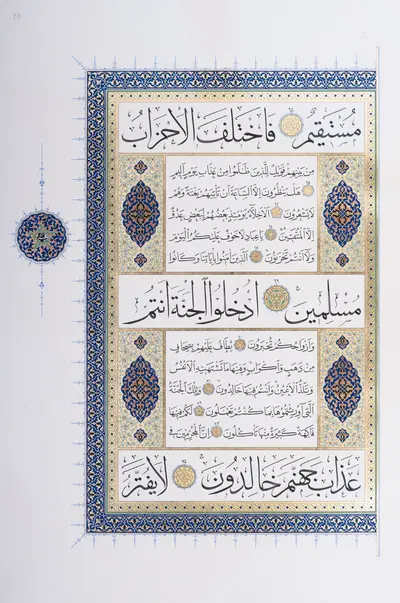 مُسْتَقِيمٌ فَاخْتَلَفَ الْأَحْزَابُ
مِنْ بَيْنِهِمْ فَوَيْلٌ لِلَّذِينَ ظَلَمُوا مِنْ عَذَابِ يَوْمٍ أَلِيمٍ
هَلْ يَنْظُرُونَ إِلَّا السَّاعَةَ أَنْ تَأْتِيَهُمْ بَغْتَةً وَهُمْ
لَا يَشْعُرُونَ الْأَخِلَّاءُ يَوْمَئِذٍ بَعْضُهُمْ لِبَعْضٍ عَدُوٌّ
إِلَّا الْمُتَّقِينَ يَا عِبَادِ لَا خَوْفٌ عَلَيْكُمُ الْيَوْمَ
وَلَا أَنْتُمْ تَحْزَنُونَ الَّذِينَ آمَنُوا بِآيَاتِنَا وَكَانُوا
مُسْلِمِينَ ادْخُلُوا الْجَنَّةَ أَنْتُمْ
وَأَزْوَاجُكُمْ تُحْبَرُونَ يُطَافُ عَلَيْهِمْ بِصِحَافٍ
مِنْ ذَهَبٍ وَأَكْوَابٍ وَفِيهَا مَا تَشْتَهِيهِ الْأَنْفُسُ
وَتَلَذُّ الْأَعْيُنُ وَأَنْتُمْ فِيهَا خَالِدُونَ وَتِلْكَ الْجَنَّةُ
الَّتِي أُورِثْتُمُوهَا بِمَا كُنْتُمْ تَعْمَلُونَ لَكُمْ فِيهَا
فَاكِهَةٌ كَثِيرَةٌ مِنْهَا تَأْكُلُونَ إِنَّ الْمُجْرِمِينَ فِي
عَذَابِ جَهَنَّمَ خَالِدُونَ لَا يُفَتَّرُ